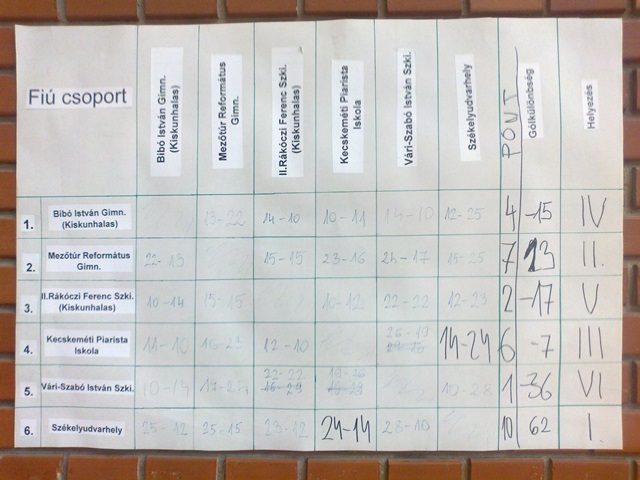 Fiú csoport
Bibó István Gimn. (Kiskunhalas)
Mezőtúr Református Gimn.
II.Rákóczi Ferenc Szki. (Kiskunhalas)
Kecskeméti Piarista Iskola
Vári-Szabó István Szki.
Székelyudvarhely
PONT
Gólkülönbség
Helyezés
1. Bibó István Gimn. (Kiskunhalas) 13-22 14-10 10-11 14-10 12-25 4 -15 IV
2. Mezőtúr Református Gimn. 22-13 15-15 23-16 24-17 15-25 7 13 II.
3. II.Rákóczi Ferenc Szki. (Kiskunhalas) 10-14 15-15 10-12 22-22 12-23 2 -17 V
4. Kecskeméti Piarista Iskola 11-10 16-23 12-10 26-19 14-24 6 -7 III
5. Vári-Szabó István Szki. 10-14 17-24 22-22 19-26 10-28 1 -36 VI
6. Székelyudvarhely 25-12 25-15 23-12 24-14 28-10 10 62 I.